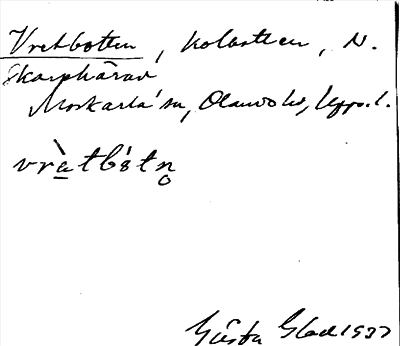 Vretbotten, kolbotten, N.
Skarphärad
Morkarla sn, Olands hd, Uppl.
vràtbótn̥
Gösta Glad 1937